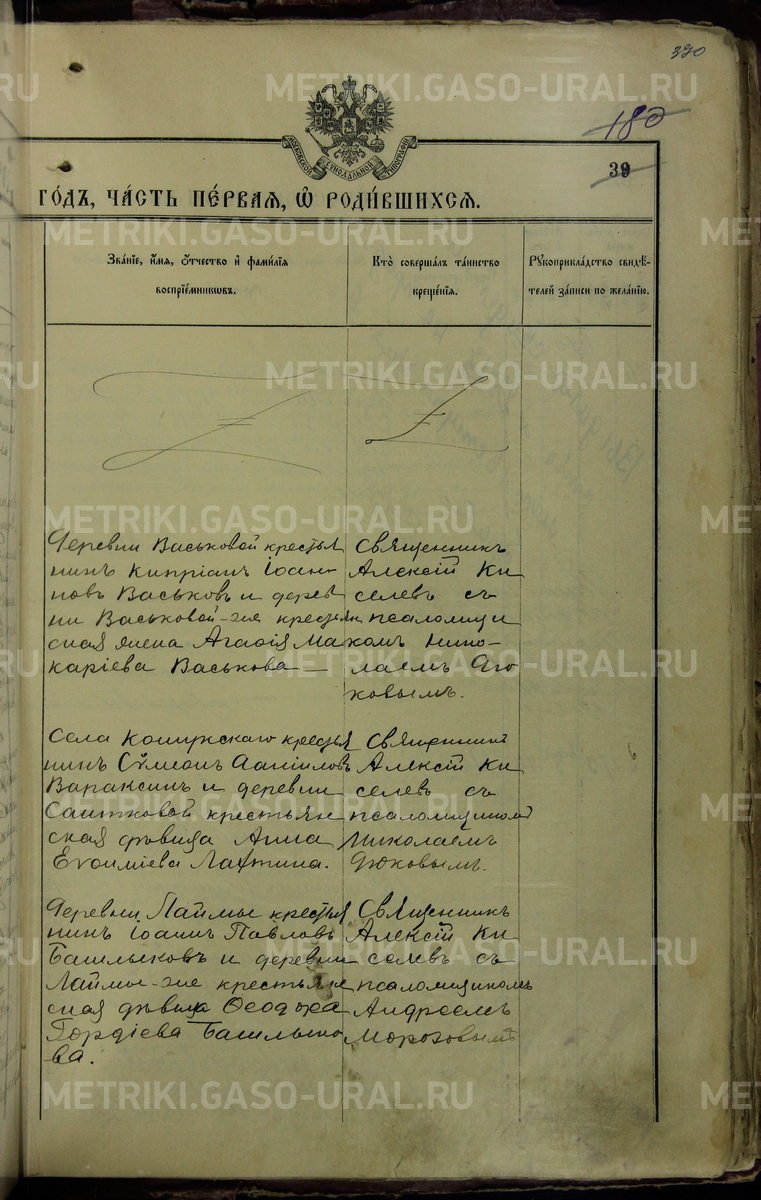 390
180
39
МОСКОВСКОЙ СѴНОДАЛЬНОЙ ТИПОГРАФІИ
ГО́ДЪ, ЧА́СТЬ ПЕ́РВАѦ, Ѡ҆ РОДИ́ВШИХСѦ.
Зва́нїе, и҆́мѧ, ѻ҆́тчество и҆ фами́лїѧ
воспрїе́мникѡвъ.
Кто̀ соверша́лъ та́инство
креще́нїѧ.
Рꙋкоприкла́дство свидѣ́-
телей за́писи по жела́нїю.
Деревни Васьковой крестья
нинъ Кипріанъ Іоан-
новъ Васьковъ и дерев
ни Васьковой-же крестьян
ская жена Агаѳія Ма
каріева Васькова
Священникъ
Алексій Ки
селевъ съ
псаломщи
комъ Нико-
лаемъ Дю
ковымъ.
Села Кошукскаго крестья
нинъ Сѵмеонъ Даніиловъ
Вараксинъ и деревни
Саитковой крестьян
ская дѣвица Анна
Евѳиміева Лаптина.
Священникъ
Алексій Ки
селевъ съ
псаломщикомъ
Николаемъ
Дюковымъ.
Деревни Лаймы крестья
нинъ Іоаннъ Павловъ
Башлыковъ и деревни
Лаймы-же крестьян
ская дѣвица Ѳеодора
Гордіева Башлыко
ва.
Священникъ
Алексій Ки
селевъ съ
псаломщикомъ
Андреемъ
Морозовымъ
METRIKI.GASO-URAL.RU